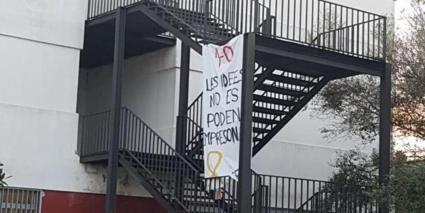 1-O
LES IDEES
NO ES
PODEN
EMPRESONAR